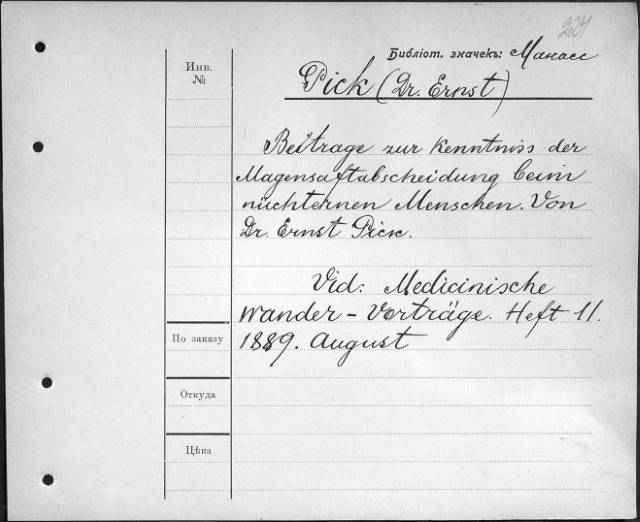 204
Библiот. значекъ: Манасс
Инв.
№
Pick (Dr. Ernst)
Beitrage zur Kenntniss der
Magensaftabscheidung beim
nüchternen Menschen. Von
Dr. Ernst Pick.
Vid: Medicinische
Wander-Vorträge. Heft 11.
1889. August
По заказу
Откуда
Цѣна